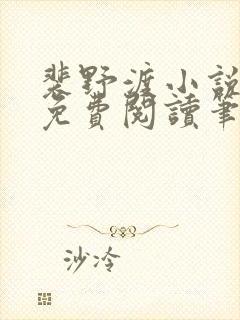 裴野渡小說
免費閱讀筆
沙冷